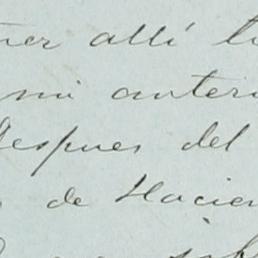 ner allí t
mi anteri
Despues del
de Hacien